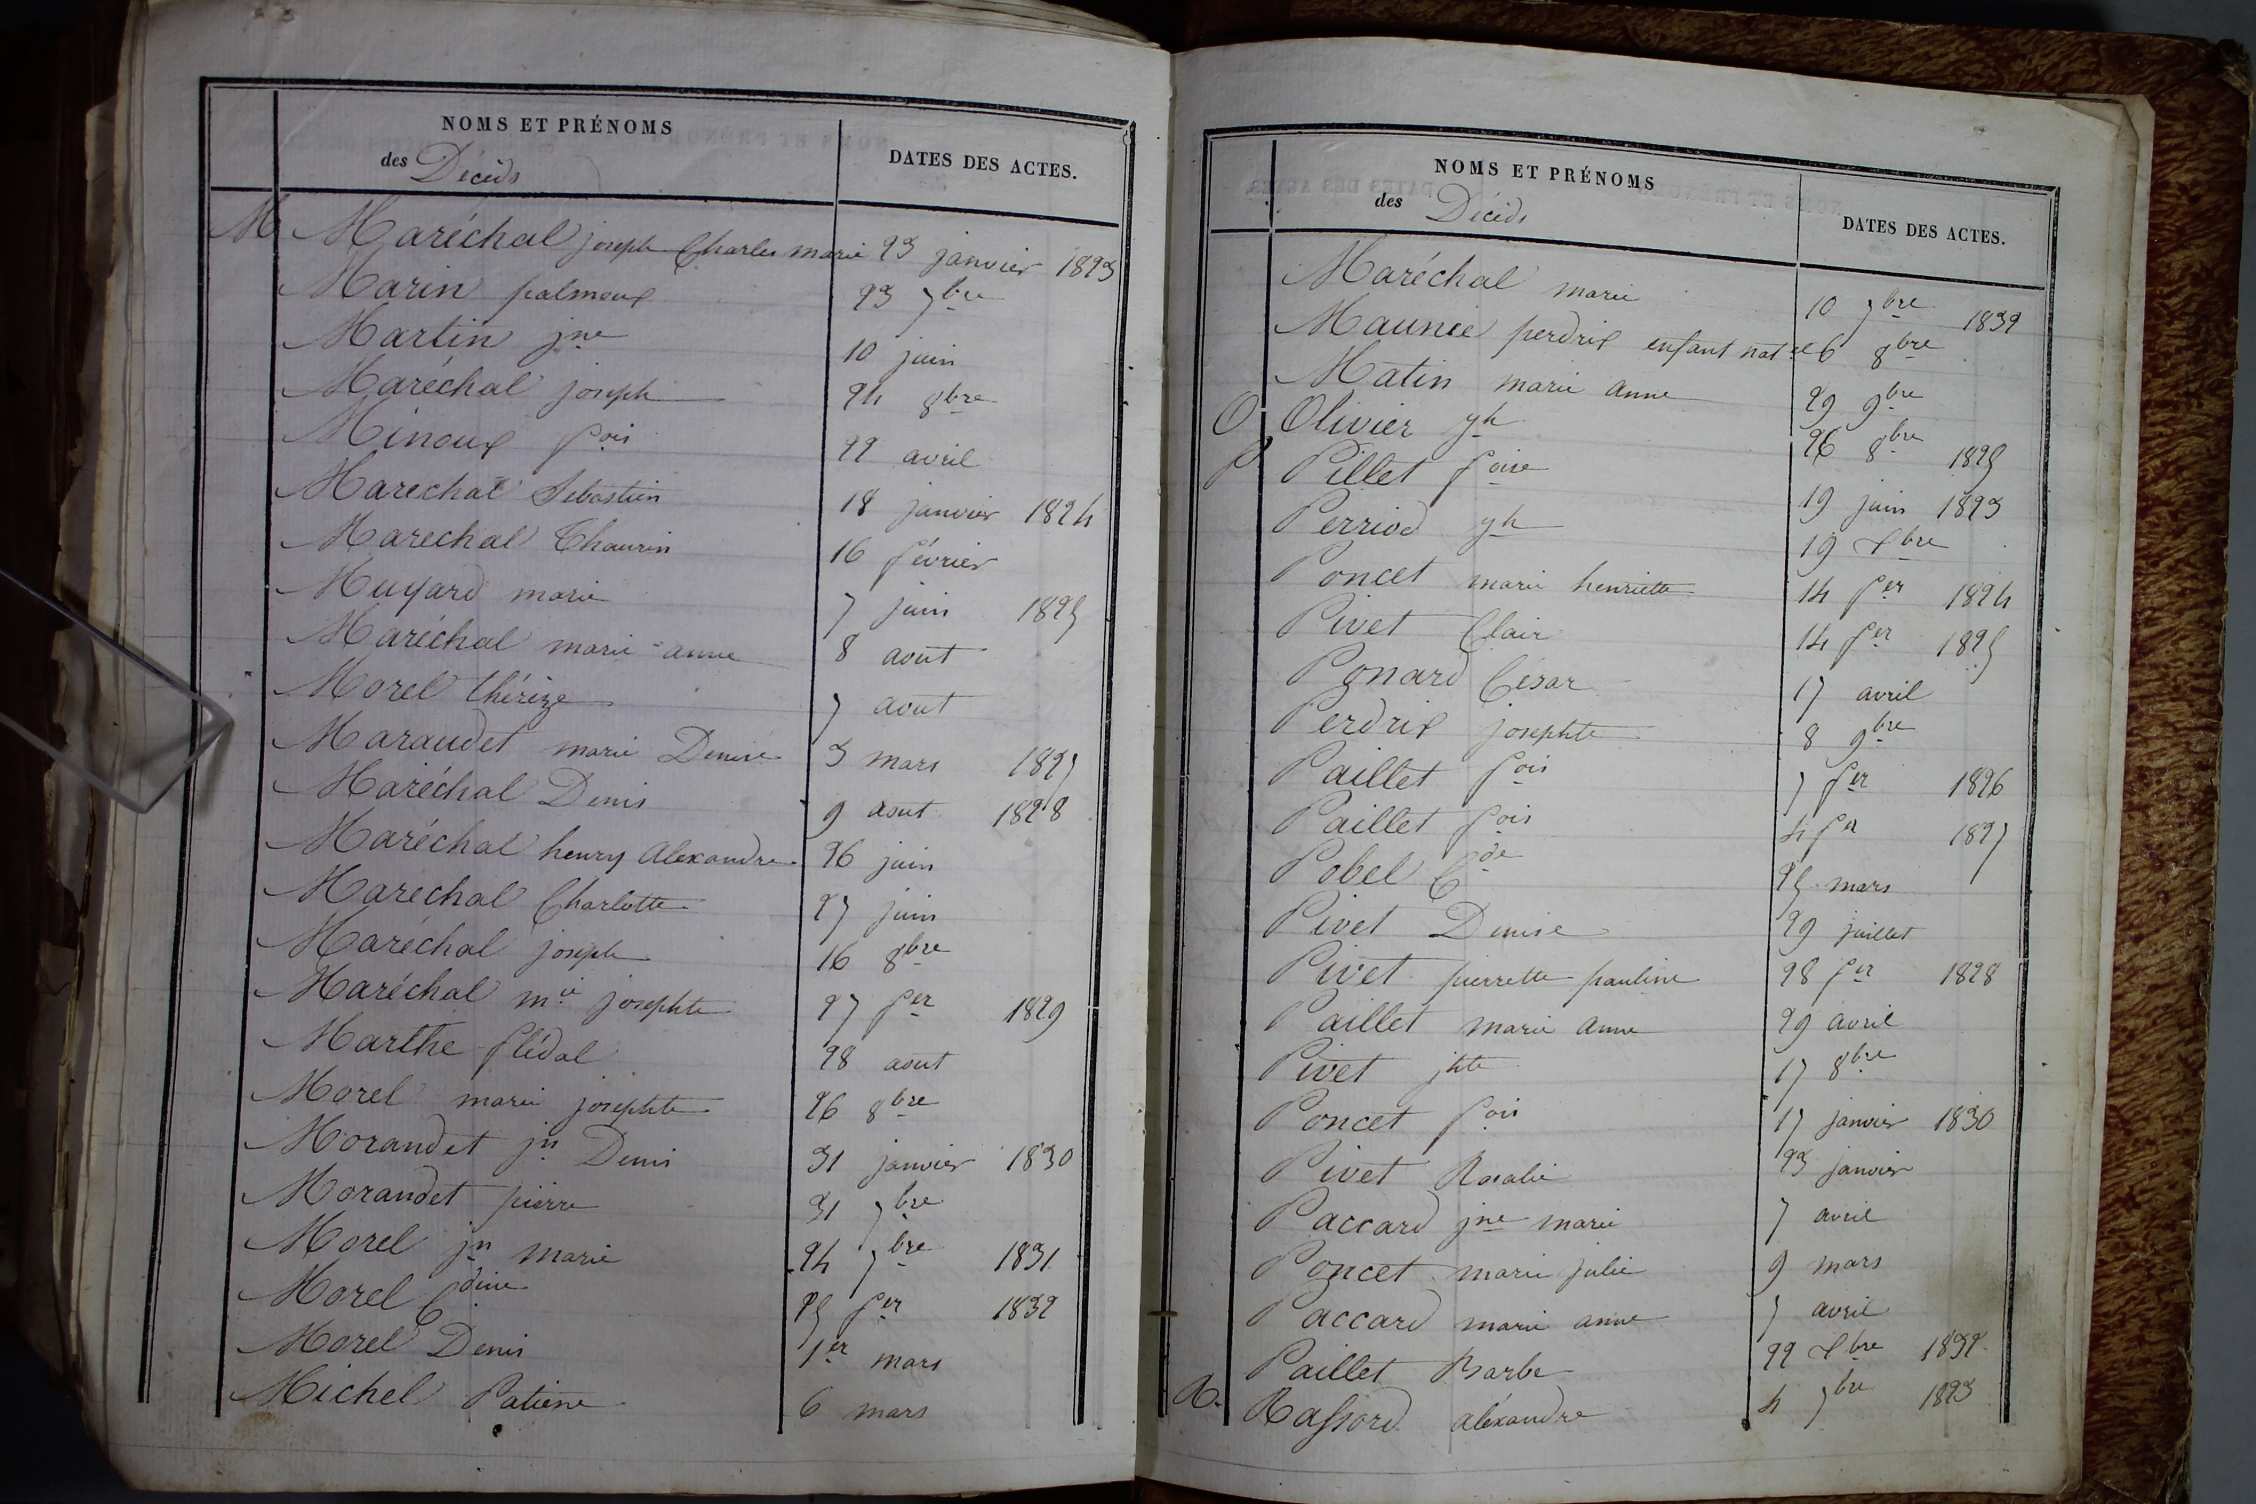 NOMS ET PRÉNOMS
des Décédés
DATES DES ACTES.
M Maréchal joseph Charles marie 23 janvier 1823
Marin palmoux 23 7bre
Martin jne 10 juin
Maréchal joseph 24 8bre
Minoux fois 22 avril
Maréchal Sebastien 18 janvier 1824
Marechal Thaurin 16 février
Muyard marie 7 juin 1825
Maréchal marie anne 8 aout
Morel thérèze 7 aout
Maraudet marie Denise 3 mars 1827
Maréchal Denis 9 aout 1828
Maréchal henry Alexandre 26 juin
Maréchal Charlotte 27 juin
Maréchal joseph 16 8bre
Maréchal mie josephte 27 fer 1829
Marthe flédal 28 aout
Morel marie josephte 26 8bre
Morandet jn Denis 31 janvier 1830
Morandet pierre 31 7bre
Morel jn marie 24 7bre 1831
Morel Cdine 25 fer 1832
Morel Denis 1er mars
Michel Patiene 6 mars
NOMS ET PRÉNOMS
des Décédés
DATES DES ACTES.
Maréchal marie 10 7bre 1832
Maunée perdrix enfant natel 6 8bre
Matin marie anne 29 9bre
O Olivier jh 26 8bre 1825
P Pillet foise 19 juin 1823
Perriod jh 19 Xbre
Poncet marie henriette 14 fer 1824
Pivet Clair 14 fer 1825
Ponard César 17 avril
Perdrix josephte 8 9bre
Paillet fois 7 fer 1826
Paillet fois 4 fer 1827
Pobel Cde 25 mars
Pivet Denise 29 juillet
Pivet pierrette pauline 28 fer 1828
Paillet marie anne 29 avril
Pivet jhte 17 8bre
Poncet fois 17 janvier 1830
Pivet Rosalie 23 janvier
Paccard jne marie 7 avril
Poncet marie julie 9 mars
Paccard marie anne 7 avril
Paillet Barbe 22 Xbre 1832
R. Rassord aléxandre 4 7bre 1823